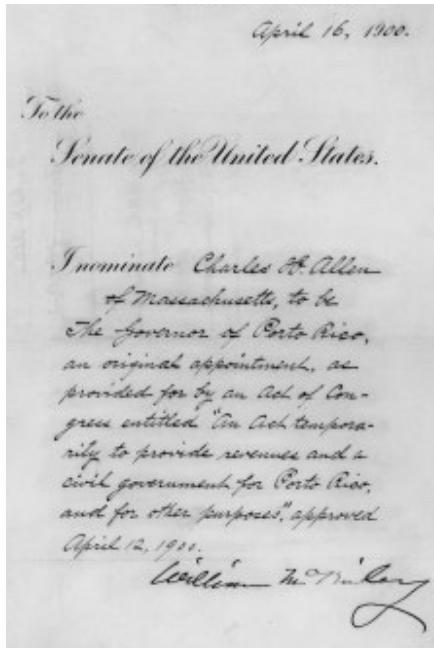 April 16, 1900.
To the
Senate of the United States.
I nominate Charles H. Allen
of Massachusetts, to be
The Governor of Porto Rico,
an original appointment, as
provided for by an Act of Con-
gress entitled "An Act tempora-
rily to provide revenues and a
civil government for Porto Rico,
and for other purposes", approved
April 12, 1900.
William McKinley